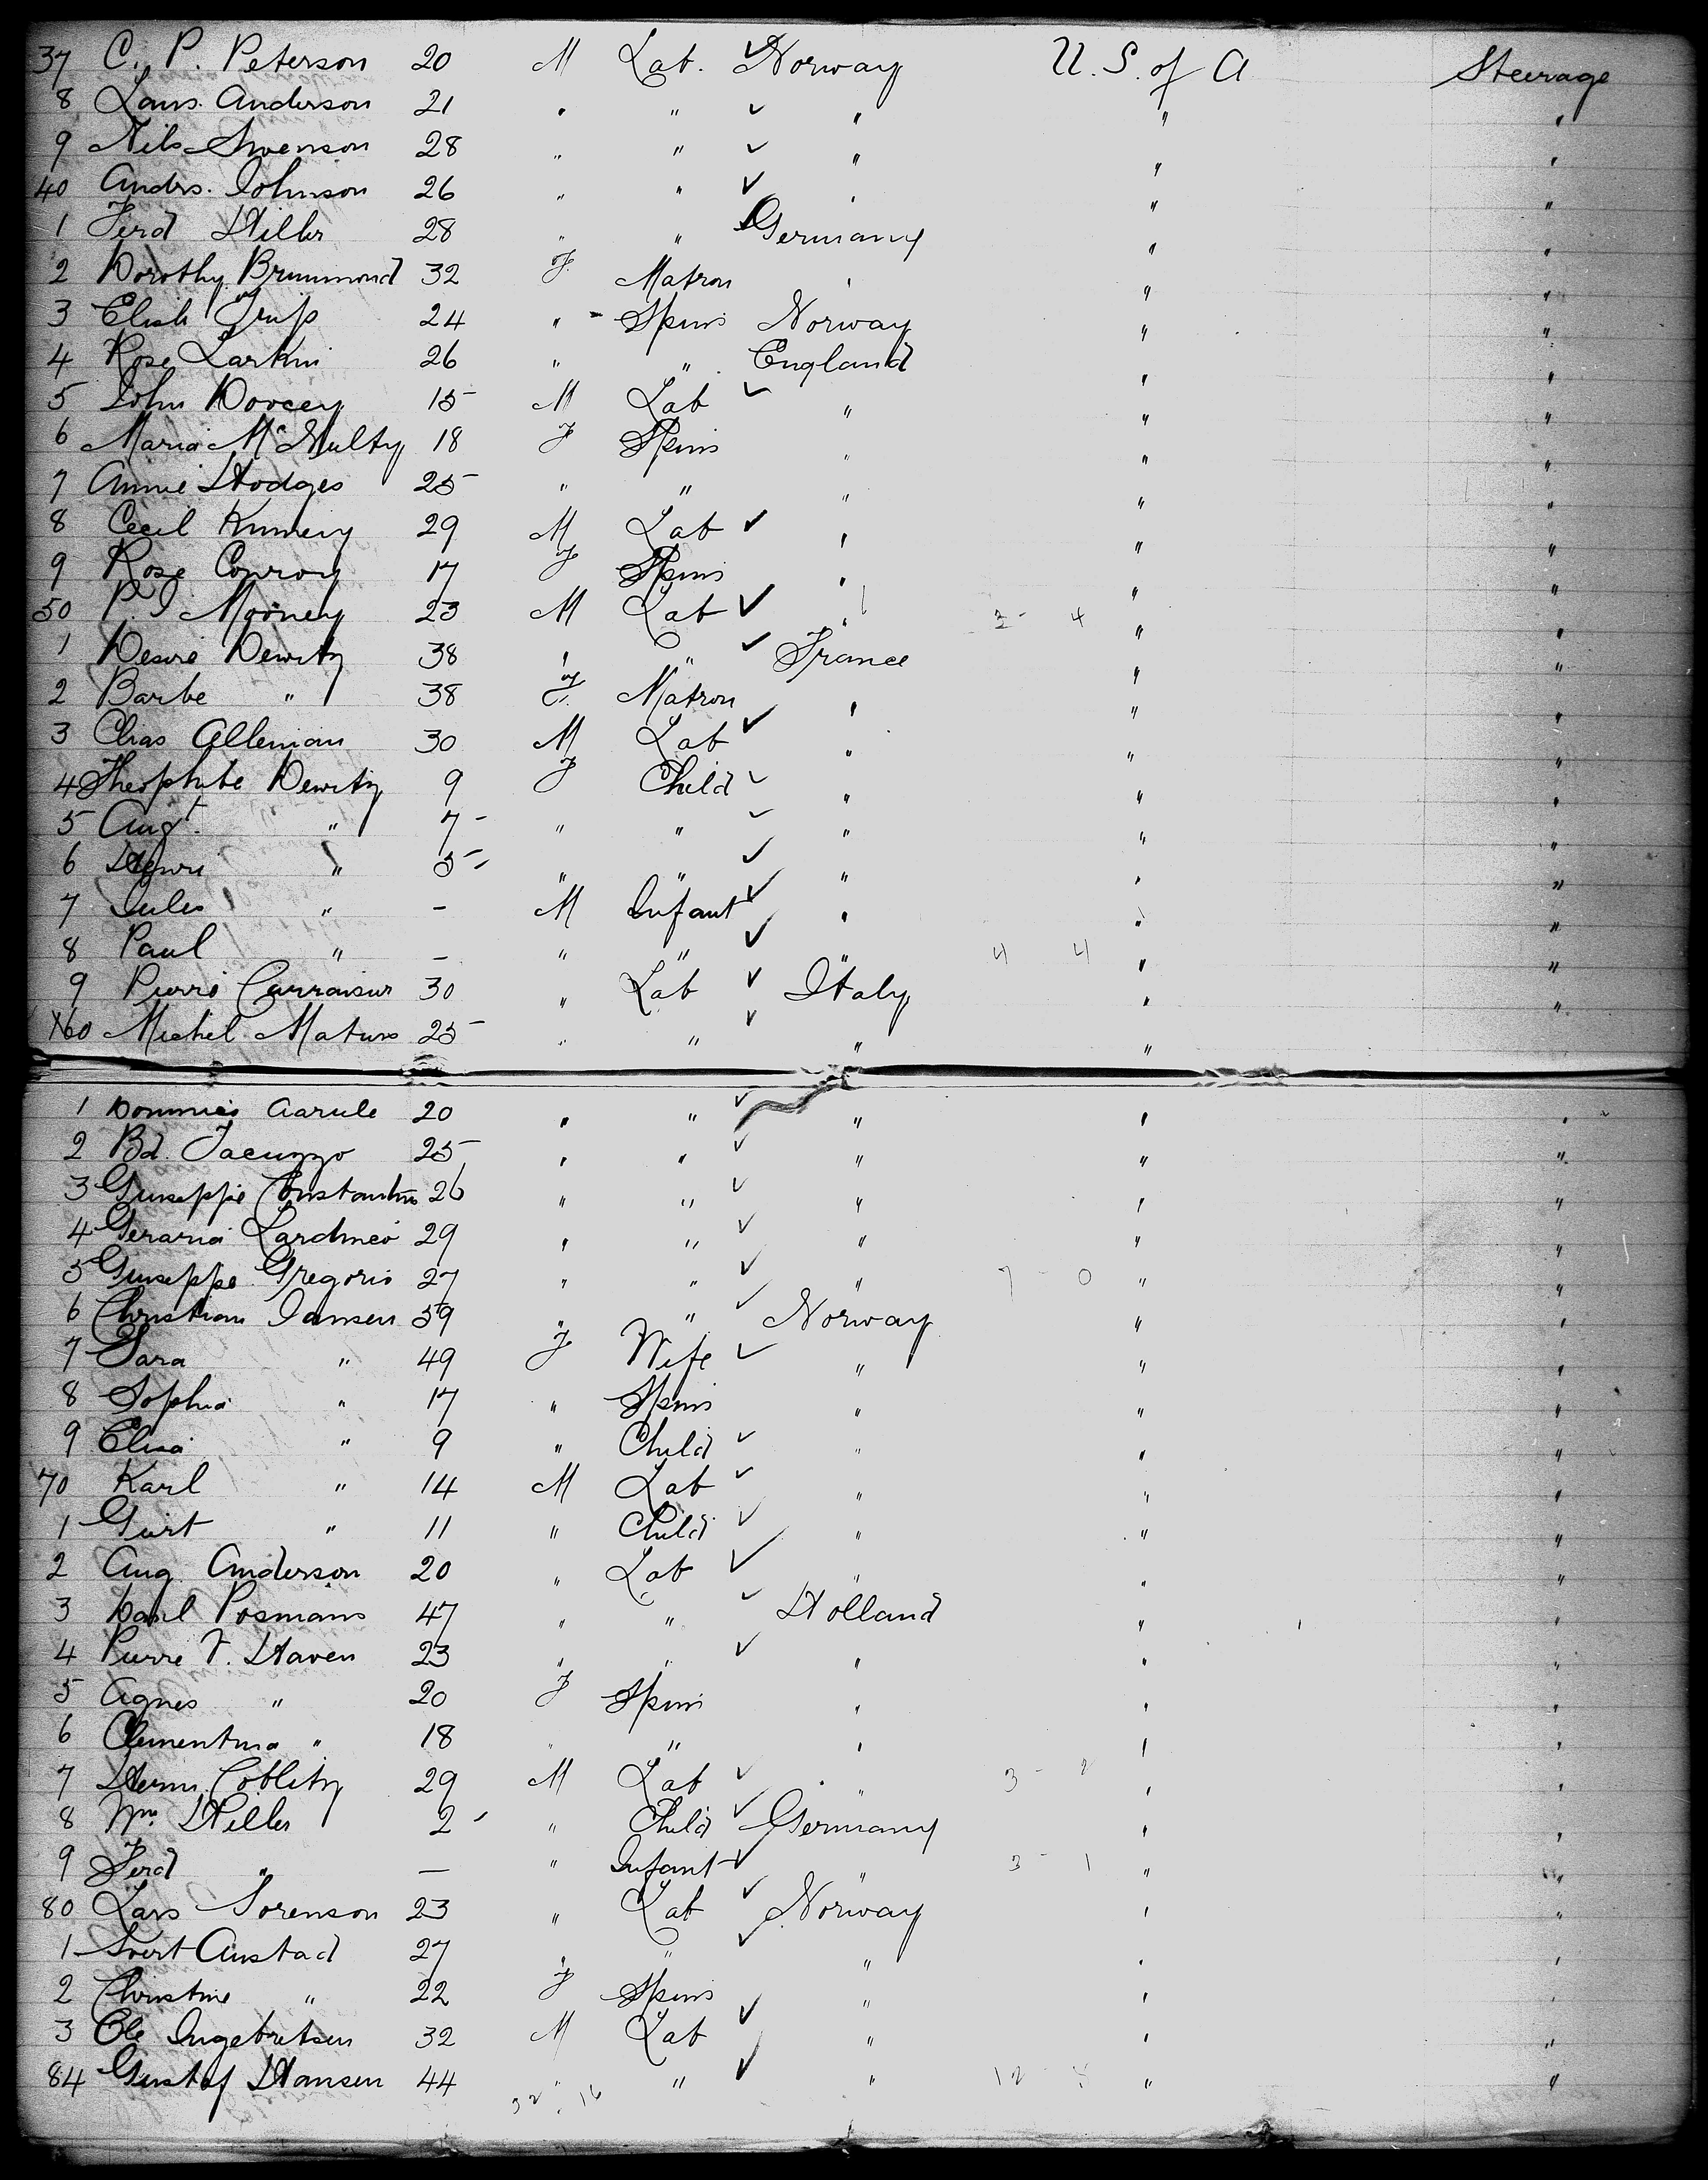 37 C. P. Peterson 20 M Lab. ✓ Norway U. S. of A Steerage
8 Laurs. Anderson 21 " " ✓ " " "
9 Nils Swenson 28 " " ✓ " " "
40 Anders. Johnson 26 " " ✓ " " "
1 Ferd Hiller 28 " " ✓ Germany " "
2 Dorothy Brummond 32 F. Matron " " "
3 Elish 24 " Spins Norway " "
4 Rose Larkin 26 " " England " "
5 John Doocey 15 M Lab ✓ " " "
6 Maria McNulty 18 F Spins " " "
7 Annie Hodges 25 " " " " "
8 Cecil 29 M Lab ✓ " " "
9 Rose Conroy 17 F Spins " " "
50 P. J Mooney 23 M Lab ✓ " 3 - 4 " "
1 Desire Dewitz 38 " " ✓ France " "
2 Barbe " 38 F. Matron " " "
3 Chas Alleman 30 M Lab ✓ " " "
4 Dewitz 9 F Child ✓ " " "
5 Augt. " 7 - " " ✓ " " "
6 Henri " 5 - " " ✓ " " "
7 Jules " - M Infant ✓ " " "
8 Paul " - " " ✓ " 4 4 " "
9 Pierre 30 " Lab ✓ Italy " "
60 Michel Maturo 25 " " ✓ " " "
1 Aarule 20 " " ✓ " " "
2 Bd. Iacuzzo 25 " " ✓ " " "
3 Giuseppe Constantino 26 " " ✓ " " "
4 29 " " ✓ " " "
5 Giuseppe Gregorio 27 " " ✓ " 7 - 0 " "
6 Christian Jansen 59 " " ✓ Norway " "
7 Sara " 49 F Wife ✓ " " "
8 Sophia " 17 " Spins " " "
9 Elisa " 9 " Child ✓ " " "
70 Karl " 14 M Lab ✓ " " "
1 Gurt " 11 " Child ✓ " " "
2 Aug Anderson 20 " Lab ✓ " " "
3 Posmans 47 " " ✓ Holland " "
4 Pierre V. Haven 23 " " ✓ " " "
5 Agnes " 20 F Spins " " "
6 Clementina " 18 " " " " "
7 Herm. Coblitz 29 M Lab ✓ " 3 - 2 " "
8 Wm. Hiller 2 - " Child ✓ Germany " "
9 Ferd " — " Infant ✓ " 3 - 1 " "
80 Lars Sorenson 23 " Lab ✓ Norway " "
1 Sivert Austad 27 " " ✓ " " "
2 Christine " 22 F Spins " " "
3 Ole Ingebretsen 32 M Lab ✓ " " "
84 Gustaf Hansen 44 " " ✓ " 12 - " "
32 16